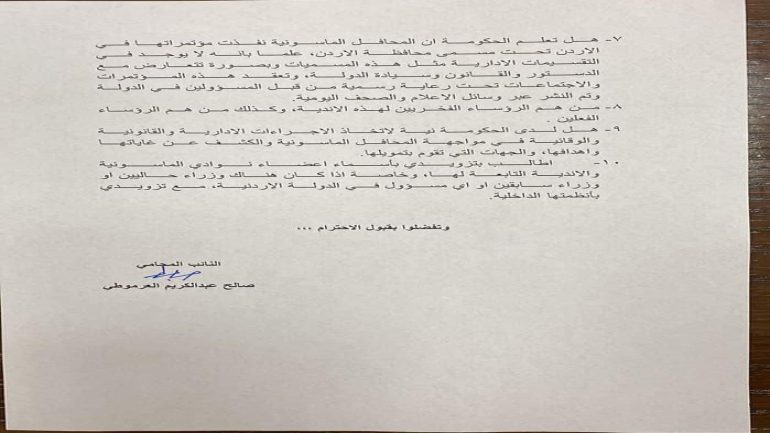 ٧- هل تعلم الحكومة ان المحافل الماسونية نفذت مؤتمراتها في
الاردن تحت مسمى محافظة الاردن، علما بانه لا يوجد في
التقسيمات الادارية مثل هذه المسميات وبصورة تتعارض مع
الدستور والقانون وسيادة الدولة، وتعقد هذه المؤتمرات
والاجتماعات تحت رعاية رسمية من قبل المسؤولين في الدولة
وتم النشر عبر وسائل الاعلام والصحف اليومية.
٨- من هم الرؤساء الفخريين لهذه الاندية، وكذلك من هم الرؤساء
الفعلين .
٩- هل لدى الحكومة نية لاتخاذ الاجراءات الادارية والقانونية
والوقائية في مواجهة المحافل الماسونية والكشف عن غاياتها
واهدافها، والجهات التي تقوم بتمويلها.
١٠- اطالب بتزويدي بأسماء اعضاء نوادي الماسونية
والاندية التابعة لها، وخاصة اذا كان هناك وزراء حاليين او
وزراء سابقين او اي مسؤول في الدولة الاردنية، مع تزويدي
بأنظمتها الداخلية.
وتفضلوا بقبول الاحترام ...
النائب المحامي
صالح عبدالكريم العرموطي